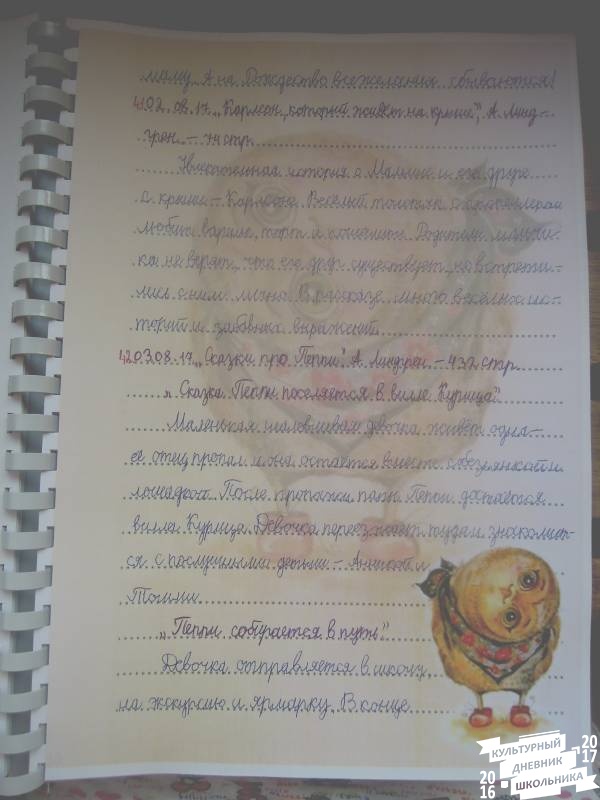 маму. А на Рождество все желания сбываются!
41 02.08.17. „Карлсон, который живёт на крыше", А. Линд-
грен. – 74 стр.
Увлекательная история о Малыше и его друге
с крыши – Карлсоне. Весёлый толстяк с пропеллером
любит варенье, торт и конечно. Родители малыш-
ка не верят, что его друг существует, но встрети-
лись с ним лично. В рассказе много весёлых ис-
торий и забавных выражений.
42 03.08.17. „Сказки про Пеппи". А. Линдгрен. – 432 стр.
„ Сказка Пеппи поселяется в вилле Курица"
Маленькая шаловливая девочка живёт одна –
её отец пропал и она остаётся вместе с обезьянкой и
лошадкой. После пропажи папы Пеппи достаётся
вилла Курица. Девочка переезжает туда и знакомит-
ся с послушными детьми – Анникой и
Томми.
„Пеппи собирается в путь"
Девочка отправляется в школу,
на экскурсию и ярмарку. В конце
КУЛЬТУРНЫЙ
ДНЕВНИК
ШКОЛЬНИКА
20
16
20
17